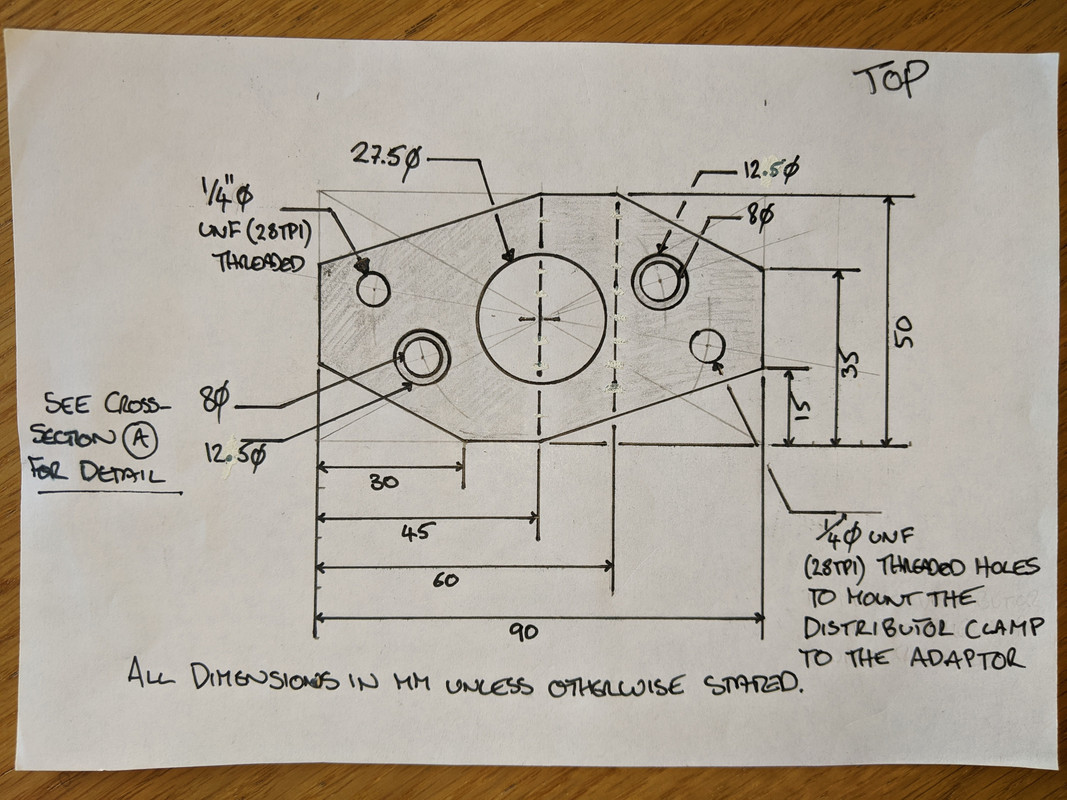 TOP
27.5ø
12.5ø
8ø
1/4" ø
UNF (28TPI)
THREADED
50
35
15
8ø
12.5ø
SEE CROSS-
SECTION (A)
FOR DETAIL
30
45
60
90
1/4 ø UNF
(28TPI) THREADED HOLES
TO MOUNT THE
DISTRIBUTOR CLAMP
TO THE ADAPTOR
ALL DIMENSIONS IN MM UNLESS OTHERWISE STATED.